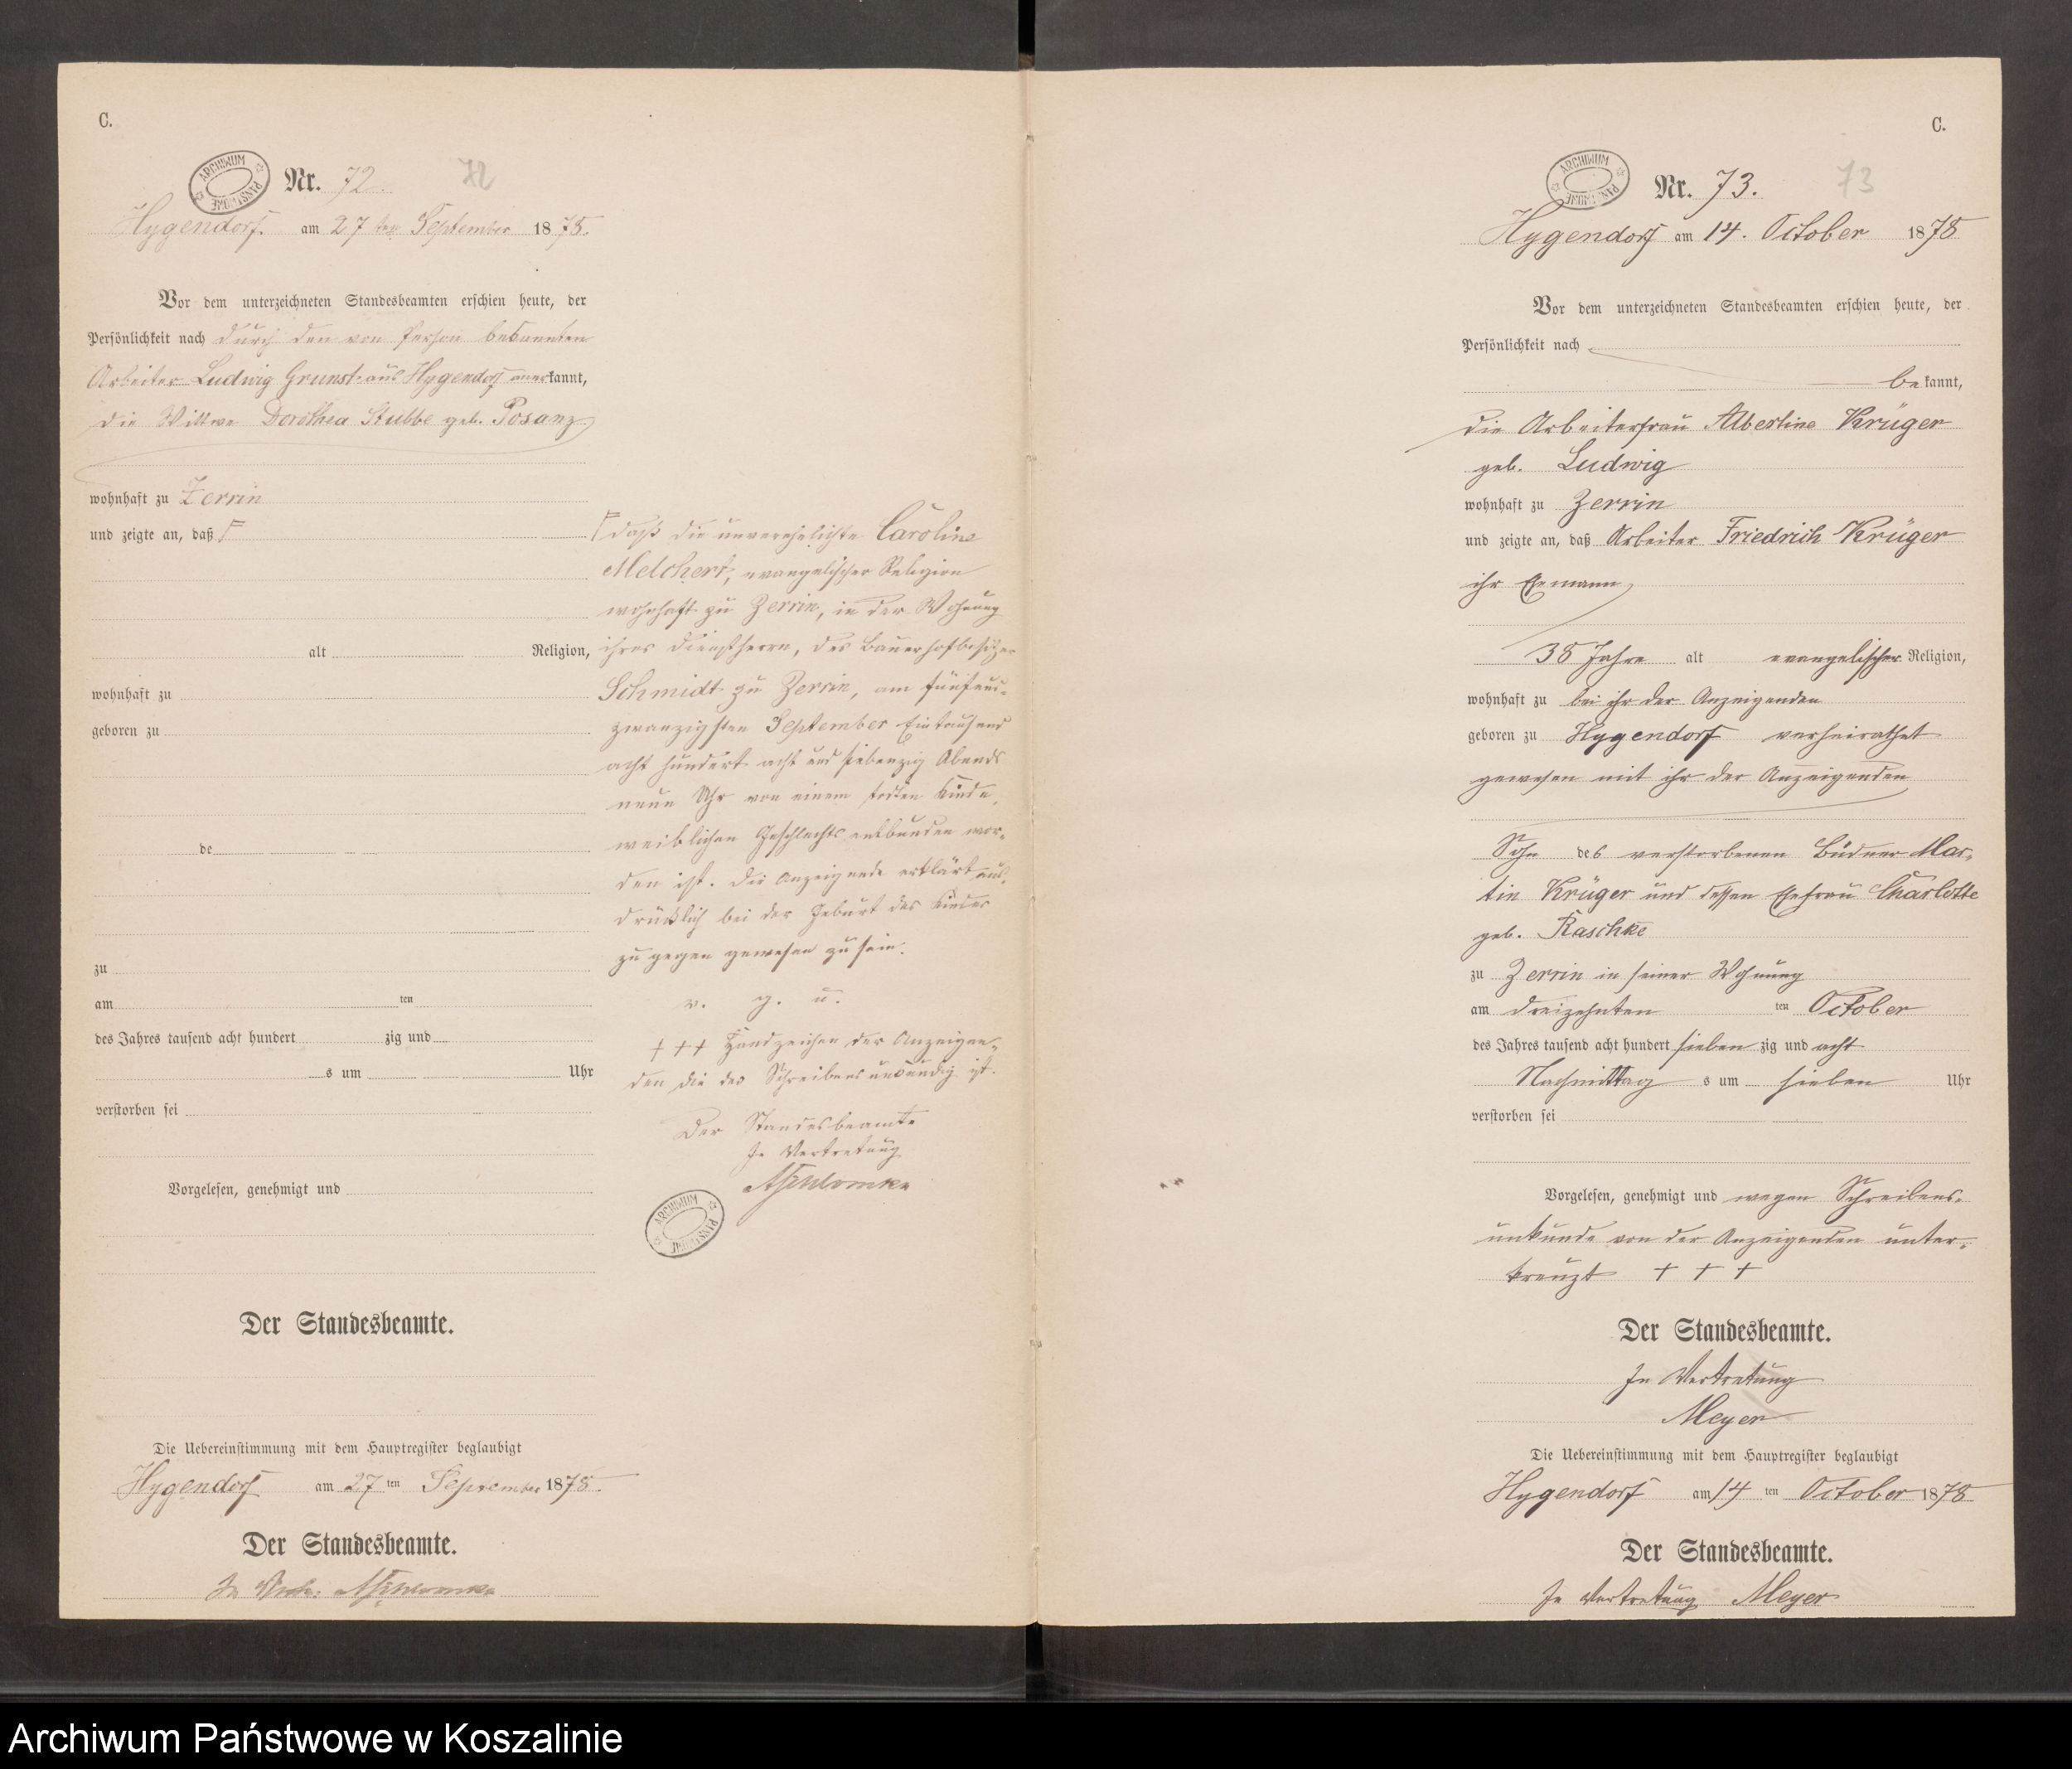 C.
ARCHIWUM PAŃSTWOWE
Nr. 72.
72
Hygendorf. am 27ten September 1878.
Vor dem unterzeichneten Standesbeamten erschien heute, der
Persönlichkeit nach durch den von Person bekannten
Arbeiter Ludwig Grunst aus Hygendorf anerkannt,
die Wittwe Dorothea Stubbe geb. Posanz
wohnhaft zu Zerrin
und zeigte an, daß
alt Religion,
wohnhaft zu
geboren zu
de
zu
am ten
des Jahres tausend acht hundert zig und
s um Uhr
verstorben sei
Vorgelesen, genehmigt und
daß die unverehelichte Caroline
Melchert, evangelischer Religion
wohnhaft zu Zerrin, in der Wohnung
ihres Dienstherrn, des Bauerhofbesitzer
Schmidt zu Zerrin, am fünfund-
zwanzigsten September Eintausend
acht hundert acht und siebenzig Abends
neun Uhr von einem todten Kinde,
weiblichen Geschlechts entbunden wor-
den ist. Die Anzeigende erklärt aus-
drücklich bei der Geburt des Kindes
zu gegen gewesen zu sein.
v. g. u.
+++ Handzeichen der Anzeigen-
den die des Schreibens unkundig ist.
Der Standesbeamte
In Vertretung
ARCHIWUM PAŃSTWOWE
Der Standesbeamte.
Die Uebereinstimmung mit dem Hauptregister beglaubigt
Hygendorf am 27ten September 1878.
Der Standesbeamte.
In Vertr.
C.
ARCHIWUM PAŃSTWOWE
Nr. 73.
73
Hygendorf am 14. October 1878
Vor dem unterzeichneten Standesbeamten erschien heute, der
Persönlichkeit nach
bekannt,
die Arbeiterfrau Albertine Krüger
geb. Ludwig
wohnhaft zu Zerrin
und zeigte an, daß Arbeiter Friedrich Krüger
ihr Ehemann,
38 Jahre alt evangelischer Religion,
wohnhaft zu bei ihr der Anzeigenden
geboren zu Hygendorf verheirathet
gewesen mit ihr der Anzeigenden
Sohn des verstorbenen Büdner Mar-
tin Krüger und dessen Ehefrau Charlotte
geb. Raschke
zu Zerrin in seiner Wohnung
am dreizehnten ten October
des Jahres tausend acht hundert sieben zig und acht
Nachmittag s um sieben Uhr
verstorben sei
Vorgelesen, genehmigt und wegen Schreibens-
unkunde von der Anzeigenden unter-
kreuzt + + +
Der Standesbeamte.
In Vertretung
Meyer
Die Uebereinstimmung mit dem Hauptregister beglaubigt
Hygendorf am 14 ten October 1878
Der Standesbeamte.
In Vertretung Meyer
Archiwum Państwowe w Koszalinie